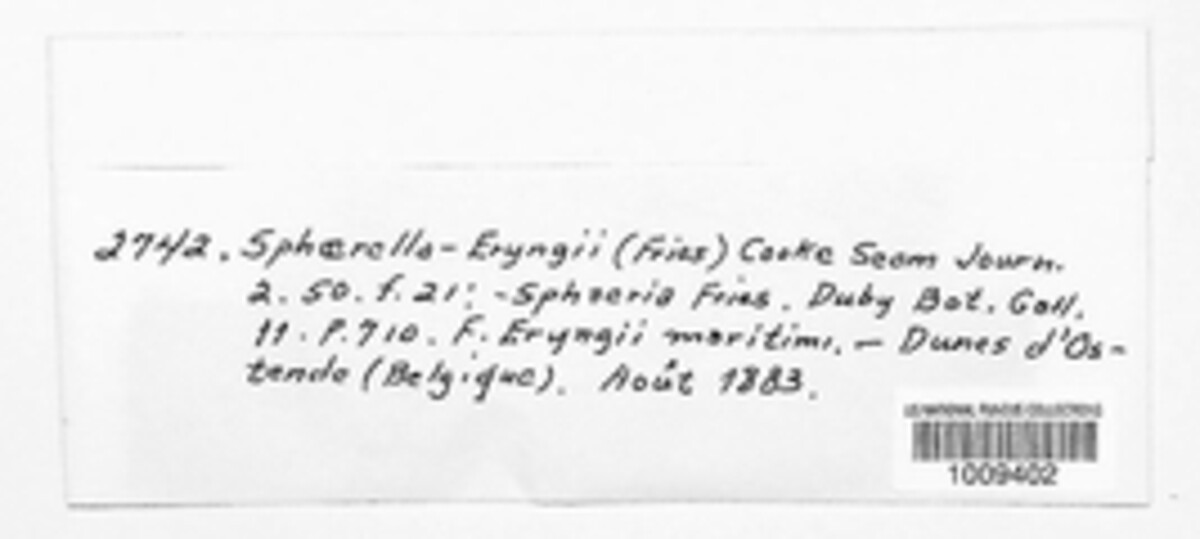 2742. Sphærella-Eryngii (Fries) Cooke Seem Journ.
2. 50. f. 21: -Sphaeria Fries. Duby Bot. Gall.
11. P. 710. F. Eryngii maritimi. — Dunes d'Os-
tende (Belgique). Août 1883.
US NATIONAL FUNGUS COLLECTIONS
1009402